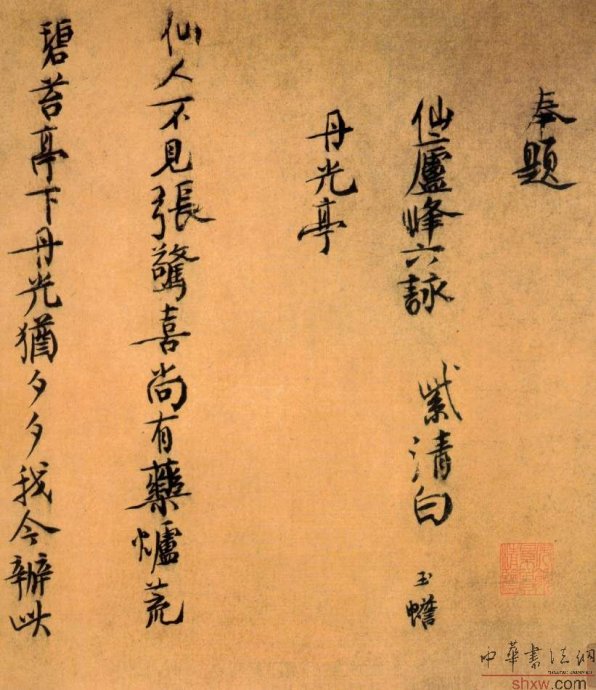 奉題
仙廬峰六詠 紫清白玉蟾
丹光亭
仙人不見張驚喜尚有藥爐荒
碧苔亭下丹光猶夕夕我今辦此
中華書法網
shxw.com